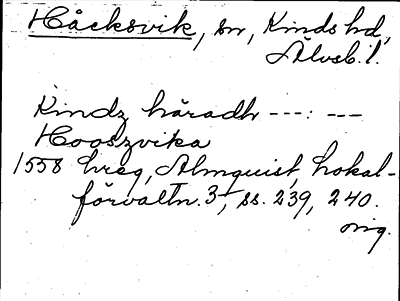 Håcksvik, sn, Kinds hd,
Älvsb. l.
Kindz häradh ---: ---
Hooszvika
1558 hreg, Almquist, Lokal-
förvaltn. 3, ss. 239, 240.
orig.